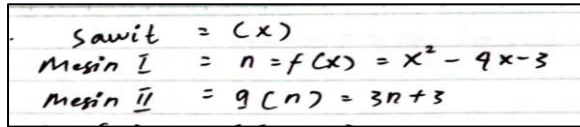 . Sawit = (x)
Mesin I = n = f(x) = x² - 4x-3
Mesin II = g(n) = 3n+3